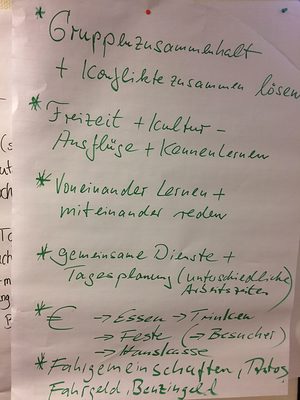 * Gruppenzusammenhalt
+ Konflikte zusammen lösen
* Freizeit + Kultur -
Ausflüge + Kennenlernen
* Voneinander Lernen +
miteinander reden
* gemeinsame Dienste +
Tagesplanung (unterschiedliche
Arbeitszeiten)
* € → Essen → Trinken
→ Feste (→ Besucher)
→ Hauskasse
* Fahrgemeinschaften,
Fahrgeld, Benzingeld